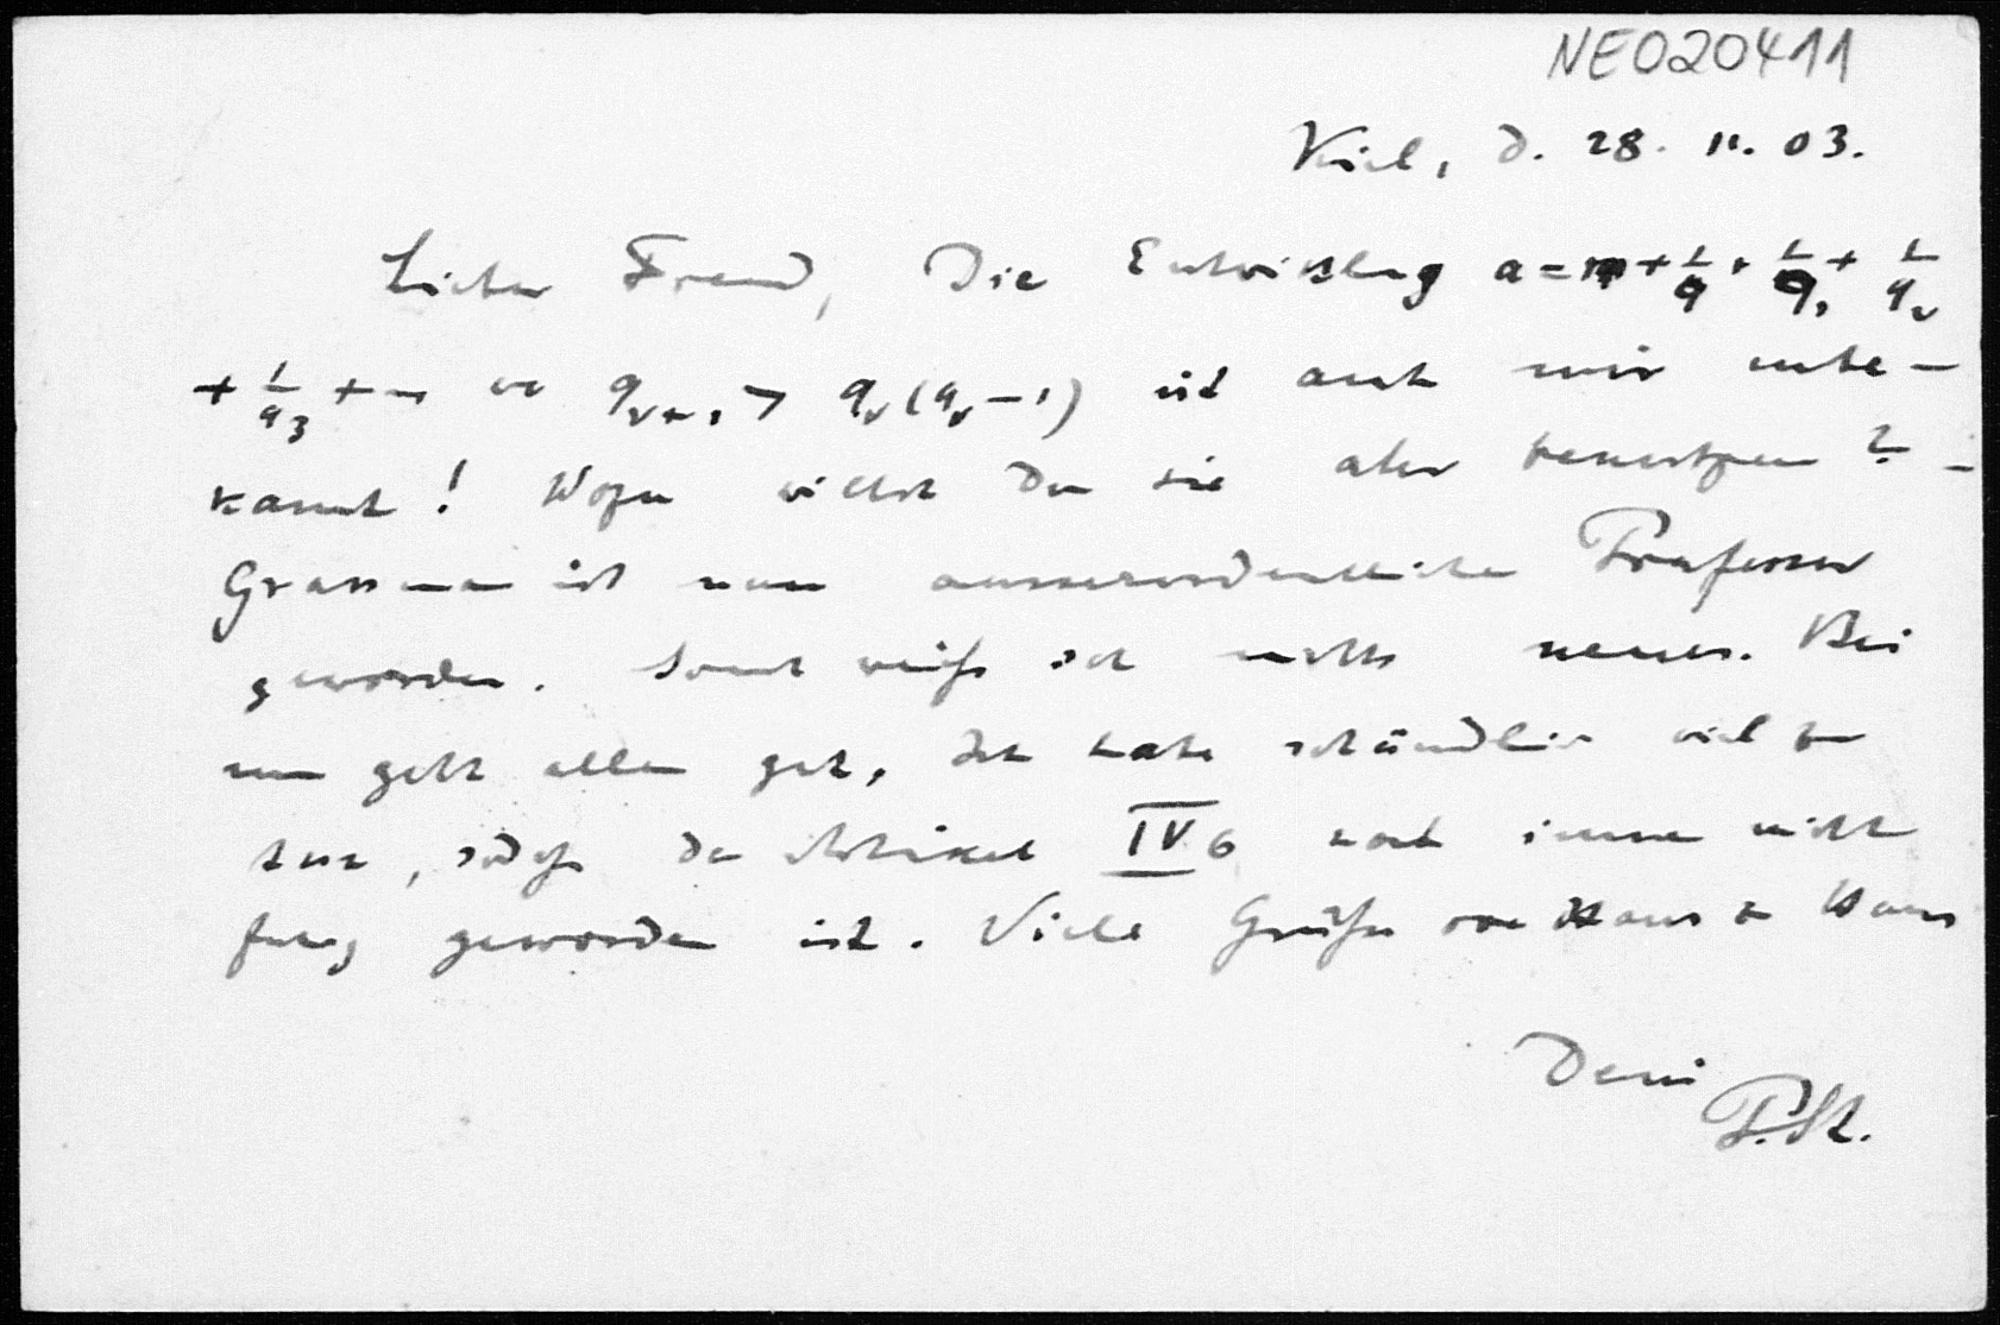 NE020411
Kiel, d. 28. 11. 03.
Lieber Freund, Die Entwicklung a = m + 1/q + 1/q₁ + 1/q₂
+ 1/q₃ + ... wo qᵥ₊₁ > qᵥ(qᵥ-1) ist auch mir unbe-
kannt! Wozu willst Du sie aber benutzen? -
Grassmann ist nun ausserordentlicher Professor
geworden. Sonst weiß ich nichts neues. Bei
uns geht alles gut, Ich habe schändlich viel zu
tun, sodaß der Artikel IV 6 noch immer nicht
fertig geworden ist. Viele Grüße von Haus zu Haus
Dein
P. St.